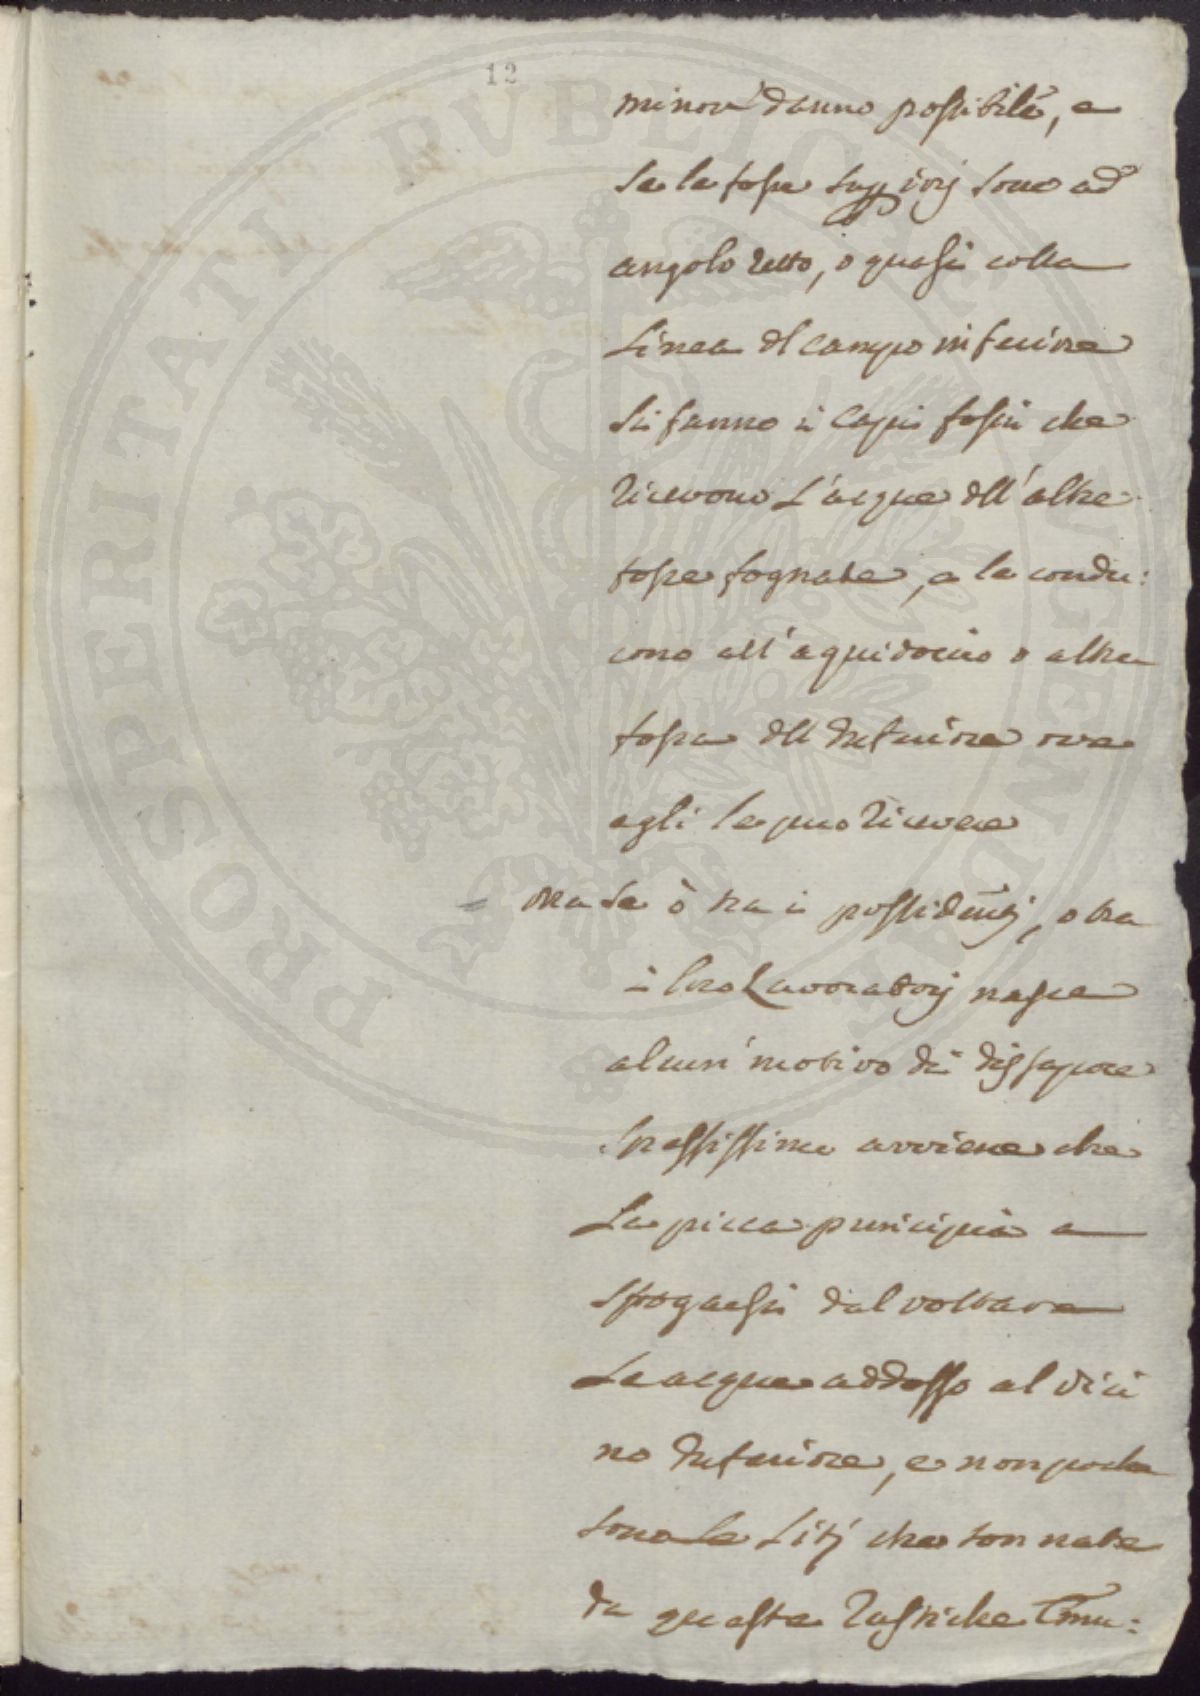 12
minor danno possibile, e
se le fosse supp.iorj sono ad
angolo retto, o quasi colla
Linea dl campo inferiore
Si fanno i Capi fossi che
ricevono L'acque dll'altre
fosse fognate, e le condu:
cono all'aquidocio o altra
fossa dll Inferiore ove
egli le puo ricevere
= Ma se ò tra i possidenti, o tra
i loro Lavoratorj nasce
alcun motivo di dissapore
Spessissimo avviene che
La picca principia a
sfogarsi dal voltare
Le acque addosso al vici
no Inferiore, e non poche
sono Le Litj che son nate
da queste rustiche Emu:
PROSPERITATI PVBLICAE AVGENDAE